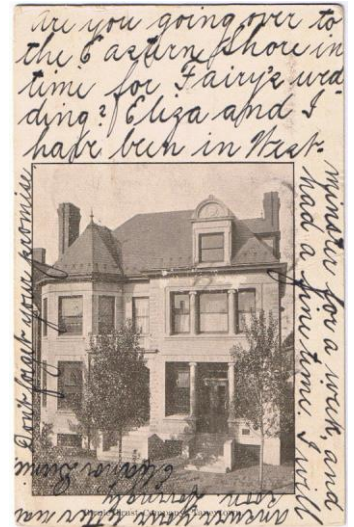 are you going over to
the Eastern Shore in
time for Fairy's wed-
ding? Eliza and I
have been in West-
minster for a week, and
had a fine time. I will
answer your letter
soon.
Don't forget your promise
Eleanor
Street,